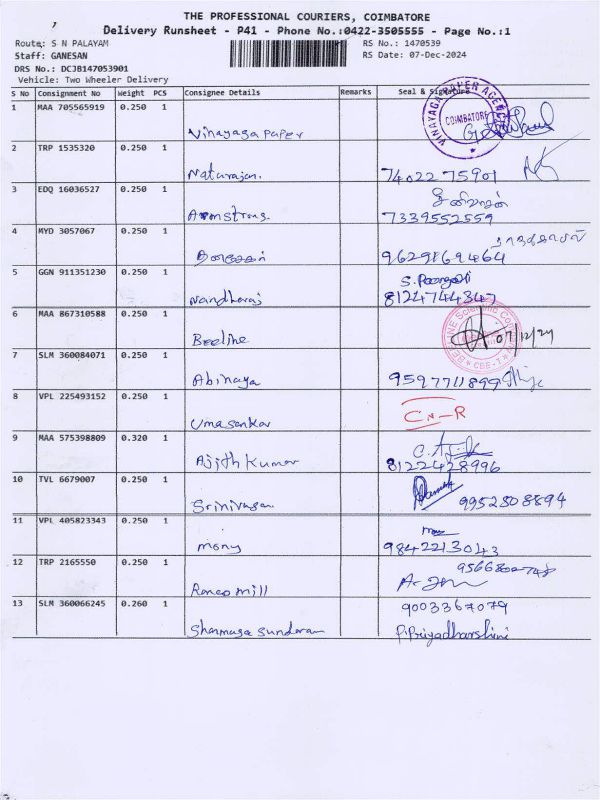 THE PROFESSIONAL COURIERS, COIMBATORE
Delivery Runsheet - P41 - Phone No.:0422-3505555 - Page No.:1
Route: S N PALAYAM
RS No.: 1470539
Staff: GANESAN
RS Date: 07-Dec-2024
DRS No.: DCJB147053901
Vehicle: Two Wheeler Delivery
S No Consignment No Weight PCS Consignee Details Remarks Seal & Signature
1 MAA 705565919 0.250 1
Vinayaga paper
VINAYAGA PAPER AGENCY
COIMBATORE
2 TRP 1535320 0.250 1
Naturajan. 7402275901
3 EDQ 16036527 0.250 1
Armstrong 7339552559
4 MYD 3057067 0.250 1
9629169464
5 GGN 911351230 0.250 1
Nandharaj 8124744347
6 MAA 867310588 0.250 1
Beeline 07/12/24
CBE-1
7 SLM 360084071 0.250 1
Abinaya 9597711899
8 VPL 225493152 0.250 1
Umasankar
9 MAA 575398809 0.320 1
Ajith Kumar 8122428996
10 TVL 6679007 0.250 1
Srinivasan 9952808894
11 VPL 405823343 0.250 1
mony 9842213043
12 TRP 2165550 0.250 1
mill
13 SLM 360066245 0.260 1
9003367079
Sundaram P.Priyadharshini